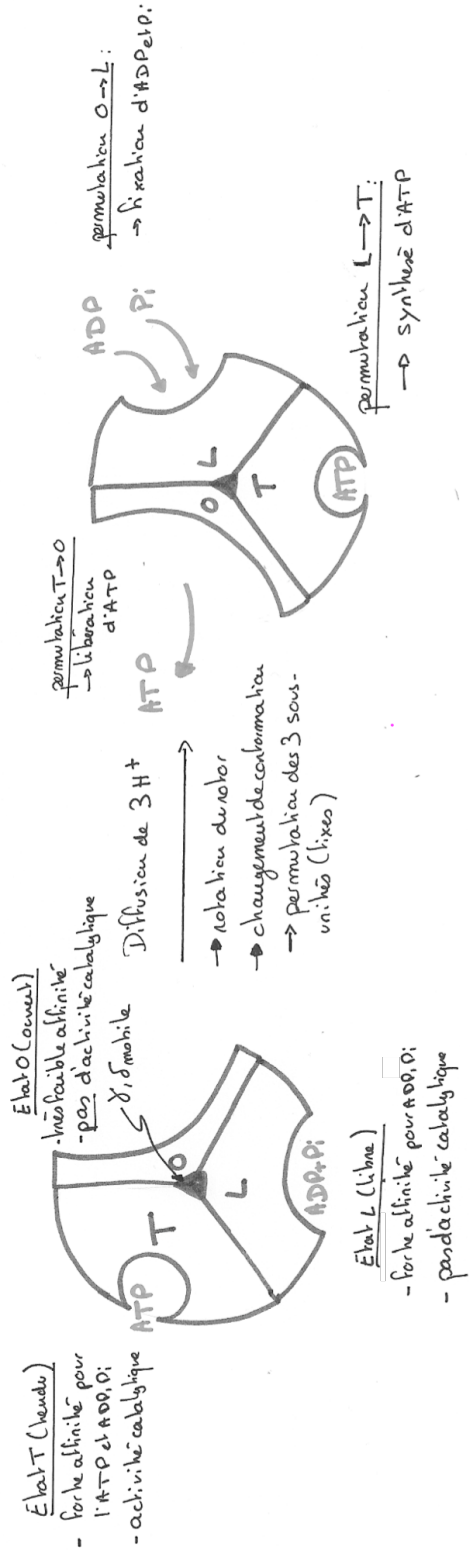 État T (tendu)
- forte affinité pour
l'ATP et ADP, Pi
- activité catalytique
ATP
T
O
L
ADP+Pi
État O (ouvert)
- très faible affinité
- pas d'activité catalytique
γ, δ mobile
État L (libre)
- forte affinité pour ADP, Pi
- pas d'activité catalytique
Diffusion de 3 H+
→ rotation du rotor
→ changement de conformation
→ permutation des 3 sous-
unités (fixes)
permutation T→O
→ libération
d'ATP
ATP
O
L
T
ATP
ADP
Pi
permutation O→L:
→ fixation d'ADP et Pi
permutation L→T:
→ synthèse d'ATP